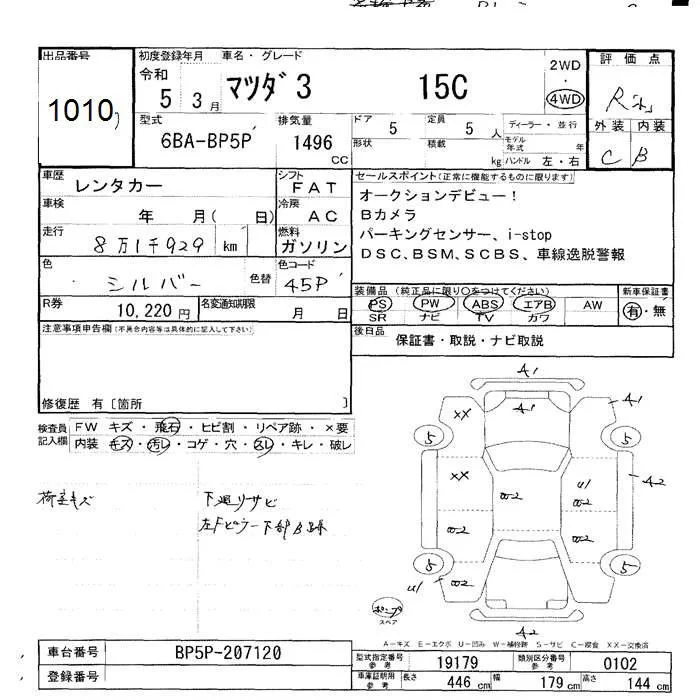 出品番号
1010
初度登録年月 車名・グレード
令和
5 3月 マツダ3 15C
2WD
4WD
評価点
R
外装 内装
C B
型式
6BA-BP5P
排気量
1496
CC
ドア 5
定員 5 人
形状
積載 kg
ディーラー・並行
モデル年式 年
ハンドル 左・右
車歴
レンタカー
車検
年 月( 日)
走行
8万1千929 km
色
シルバー
色替
シフト
FAT
冷房
AC
燃料
ガソリン
色コード
45P
セールスポイント(正常に機能するものに限ります)
オークションデビュー!
Bカメラ
パーキングセンサー、i-stop
DSC、BSM、SCBS、車線逸脱警報
R券
10,220円
名変通知期限
月 日
装備品(純正品に限り○をつけてください)
PS PW ABS エアB AW
SR ナビ TV カワ
新車保証書
有・無
後日品
保証書・取説・ナビ取説
注意事項申告欄(不具合内容等は具体的に記入して下さい)
修復歴 有〔箇所 〕
検査員記入欄
FW キズ・飛石・ヒビ割・リペア跡・×要
内装 キズ・汚レ・コゲ・穴・スレ・キレ・破レ
荷室キズ
下廻りサビ
左Fピラー下部
A1
A1
A1
XX
5
5
XX
A2
U1
W2
W2
W2
W2
5
5
U1
W2
A2
スペア
A-キズ E-エクボ U-凹み W-補修跡 S-サビ C-腐食 XX-交換済
車台番号
BP5P-207120
登録番号
型式指定番号 参考
19179
類別区分番号 参考
0102
車庫証明用 参考
長さ 446 cm
幅 179 cm
高さ 144 cm